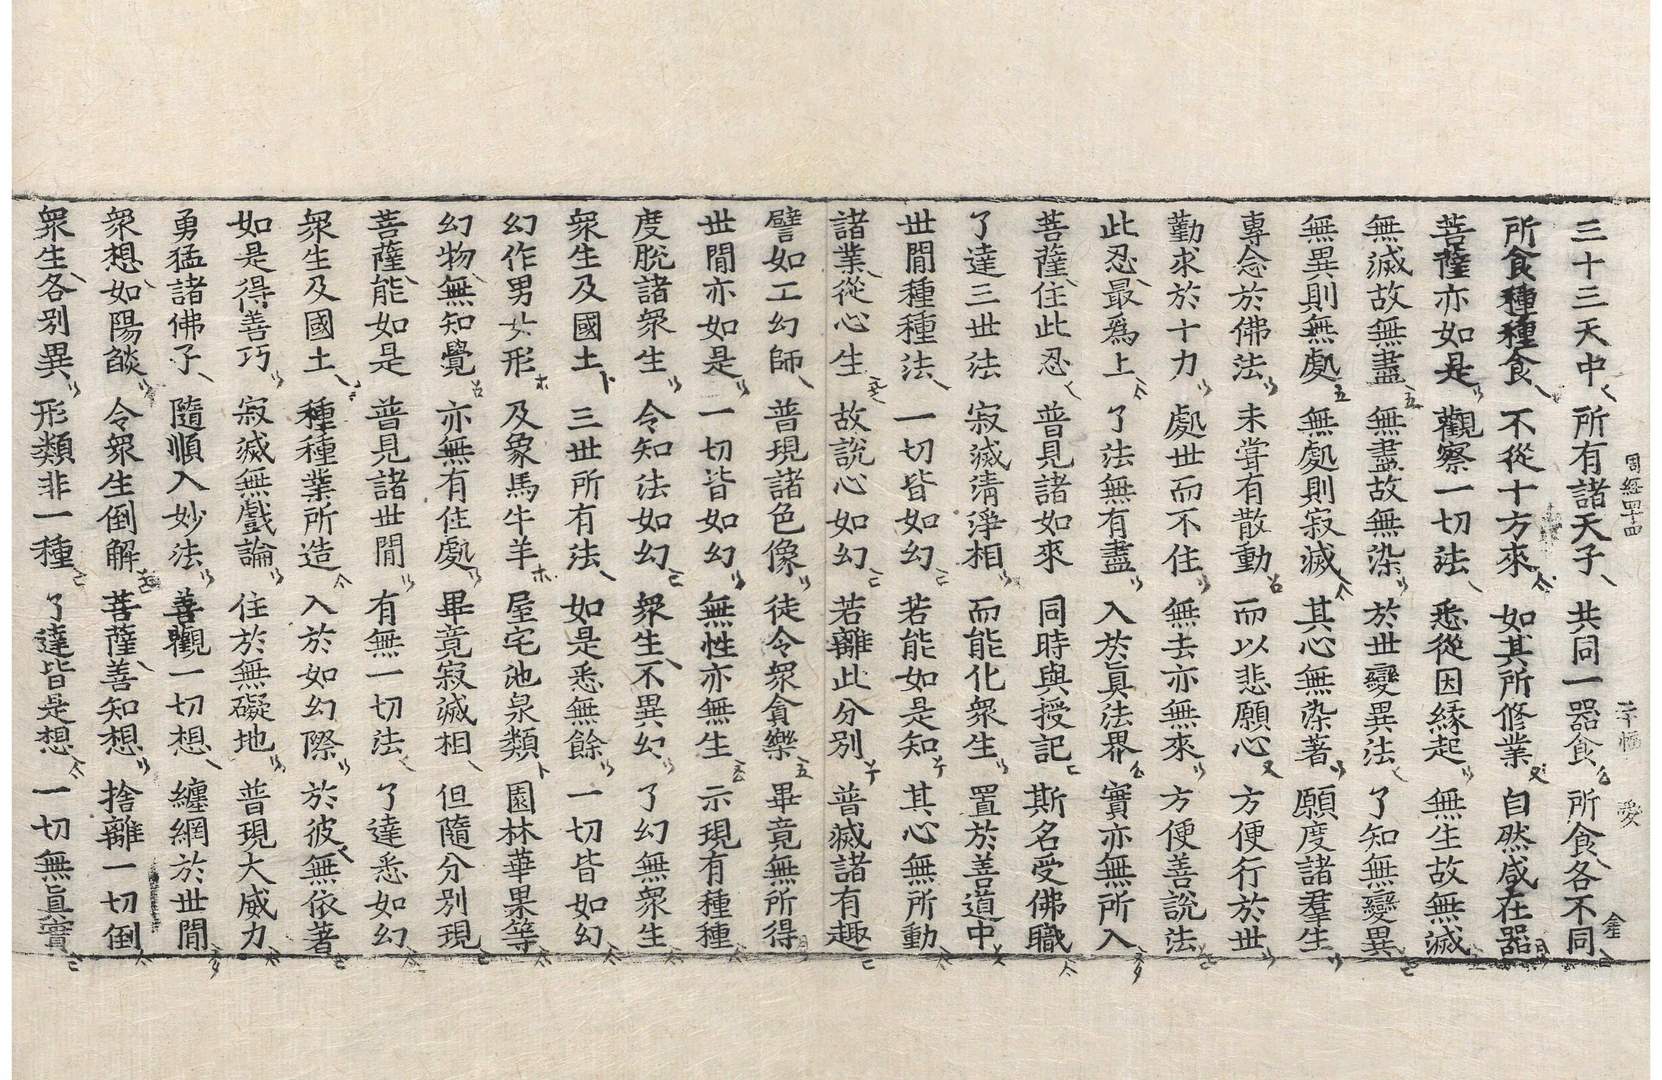 三十三天中 所有諸天子 共同一器食 所食各不同
所食種種食 不從十方來 如其所修業 自然咸在器
菩薩亦如是 觀察一切法 悉從因緣起 無生故無滅
無滅故無盡 無盡故無染 於世變異法 了知無變異
無異則無處 無處則寂滅 其心無染著 願度諸羣生
專念於佛法 未甞有散動 而以悲願心 方便行於世
勤求於十力 處世而不住 無去亦無來 方便善說法
此忍最爲上 了法無有盡 入於眞法界 實亦無所入
菩薩住此忍 普見諸如來 同時與授記 斯名受佛職
了達三世法 寂滅清淨相 而能化衆生 置於善道中
世間種種法 一切皆如幻 若能如是知 其心無所動
諸業從心生 故說心如幻 若離此分別 普滅諸有趣
譬如工幻師 普現諸色像 徒令衆貪樂 畢竟無所得
世間亦如是 一切皆如幻 無性亦無生 示現有種種
度脫諸衆生 令知法如幻 衆生不異幻 了幻無衆生
衆生及國土 三世所有法 如是悉無餘 一切皆如幻
幻作男女形 及象馬牛羊 屋宅池泉類 園林華果等
幻物無知覺 亦無有住處 畢竟寂滅相 但隨分別現
菩薩能如是 普見諸世間 有無一切法 了達悉如幻
衆生及國土 種種業所造 入於如幻際 於彼無依著
如是得善巧 寂滅無戲論 住於無礙地 普現大威力
勇猛諸佛子 隨順入妙法 善觀一切想 纏網於世間
衆想如陽燄 令衆生倒解 菩薩善知想 捨離一切倒
衆生各別異 形類非一種 了達皆是想 一切無眞實
周經四十四